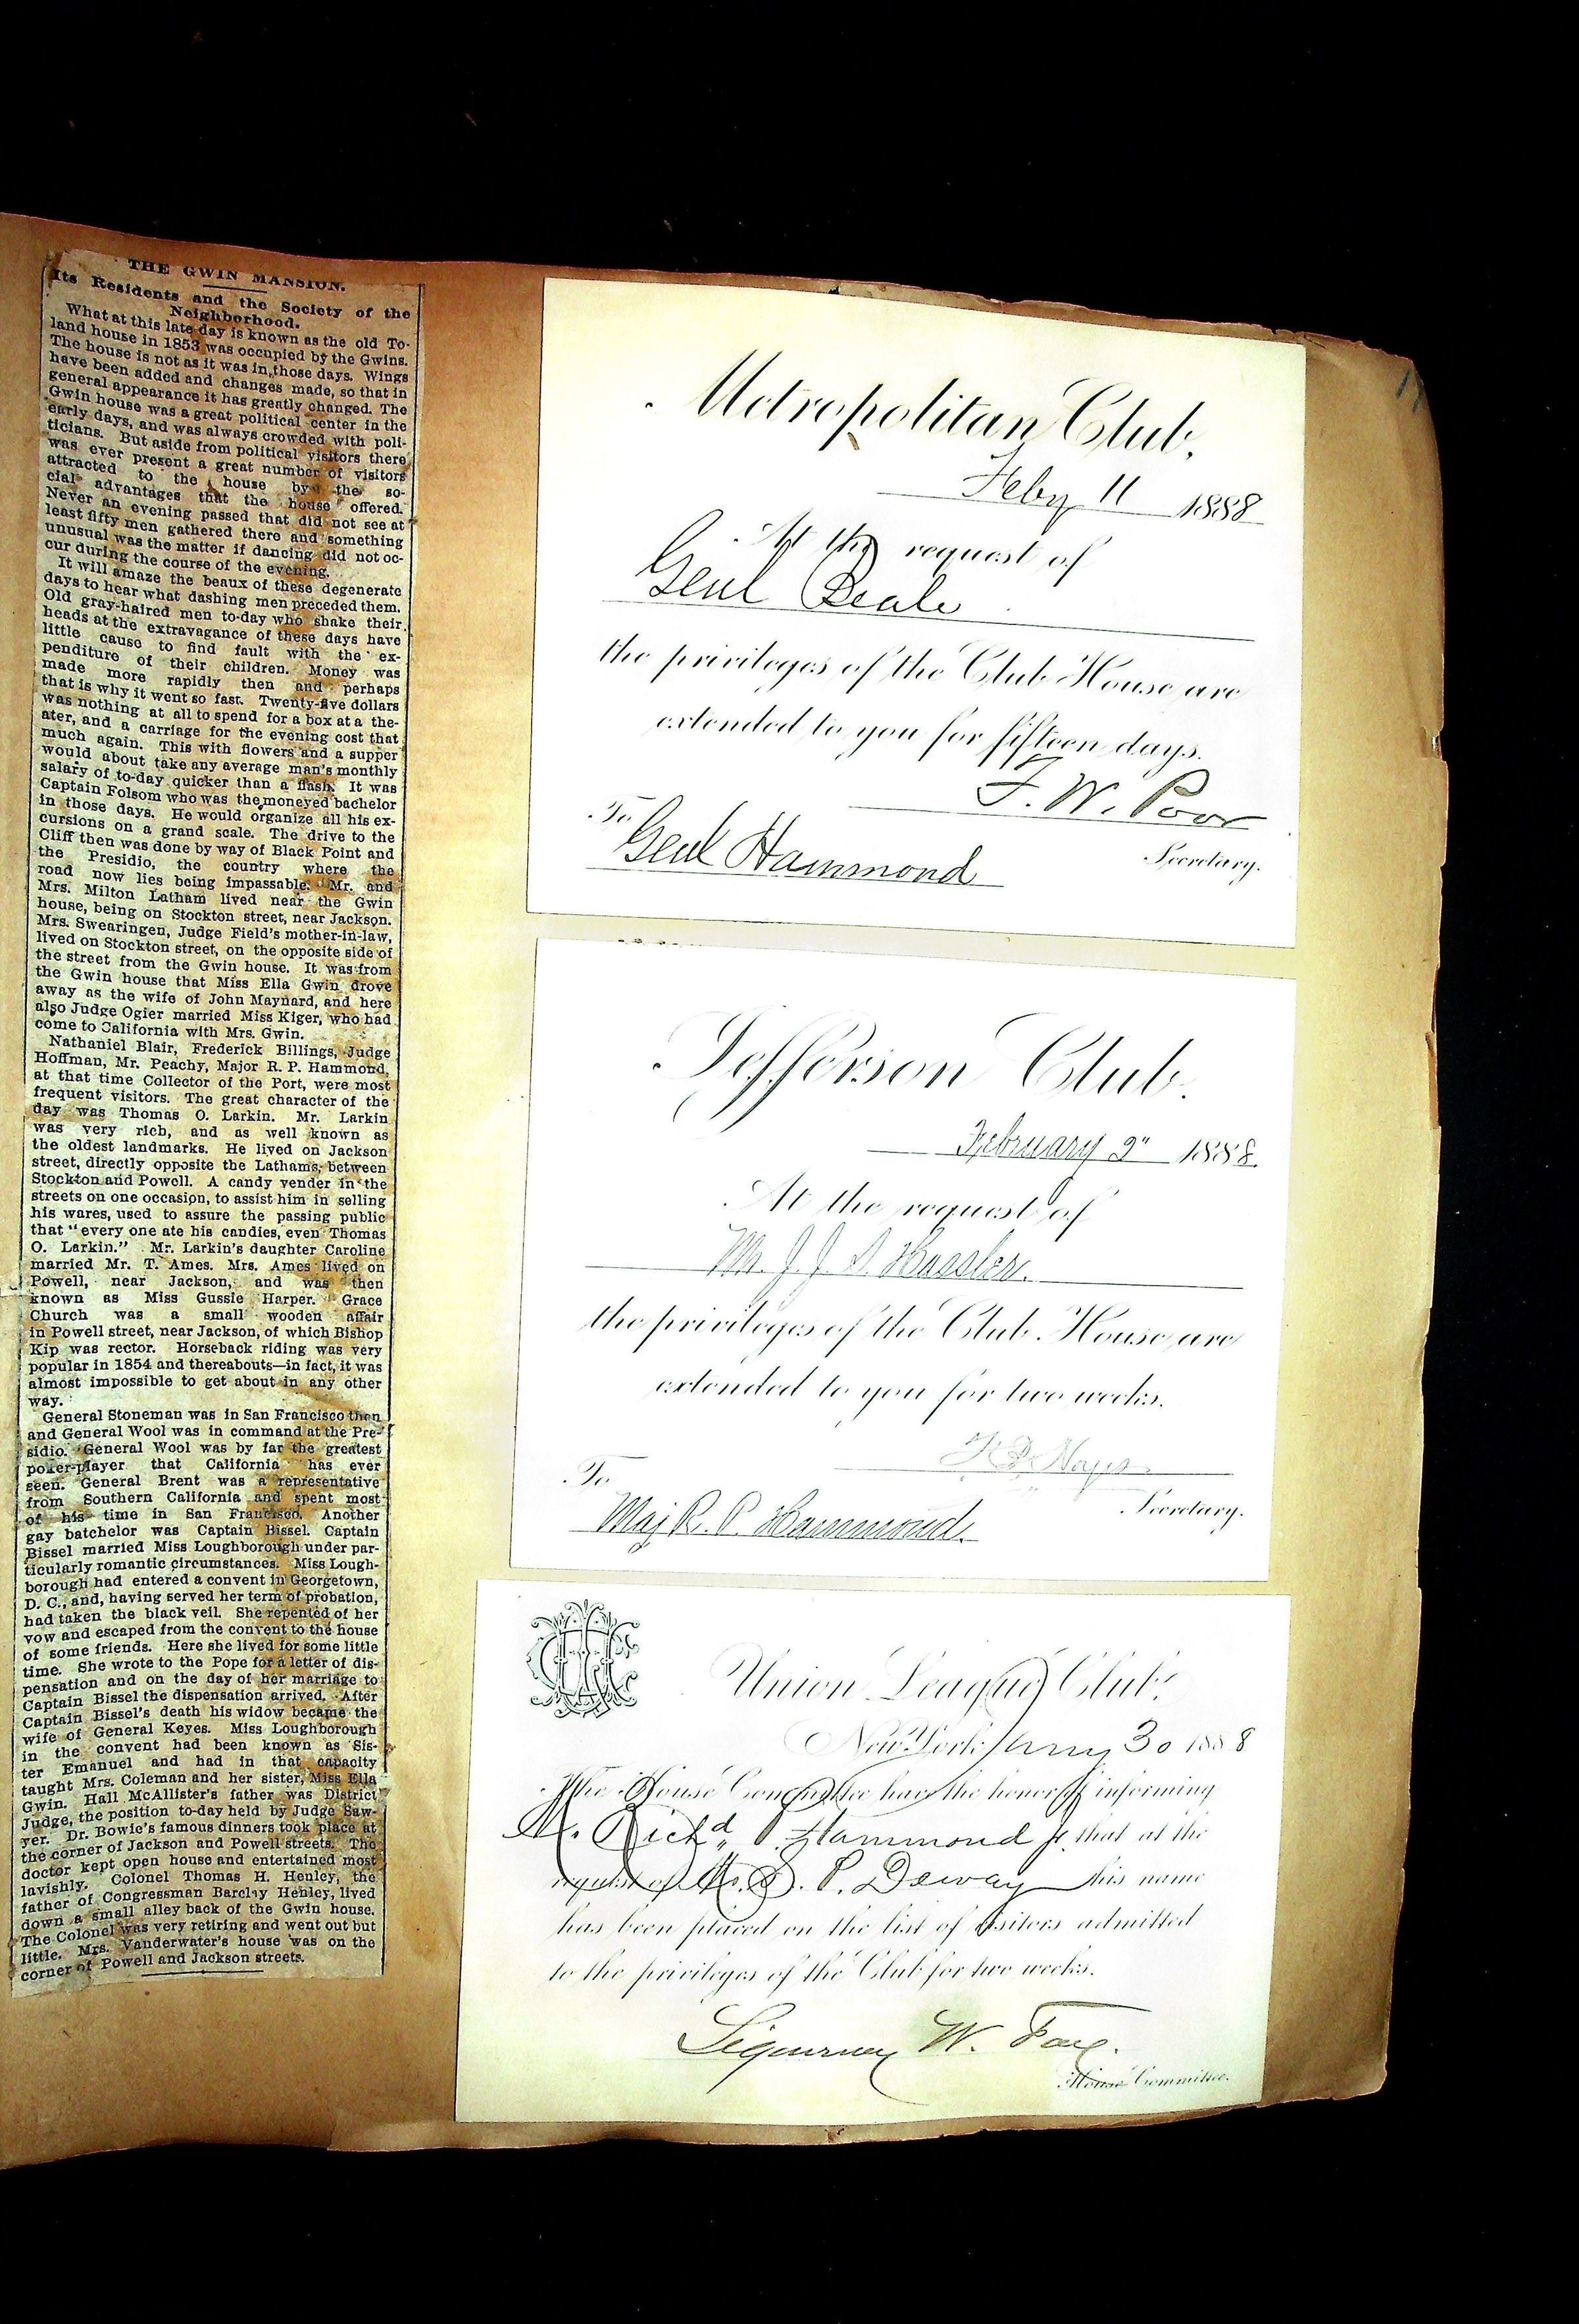 THE GWIN MANSION.
Its Residents and the Society of the
Neighborhood.
What at this late day is known as the old To-
land house in 1853 was occupied by the Gwins.
The house is not as it was in those days. Wings
have been added and changes made, so that in
general appearance it has greatly changed. The
Gwin house was a great political center in the
early days, and was always crowded with poli-
ticians. But aside from political visitors there
was ever present a great number of visitors
attracted to the house by the so-
cial advantages that the house offered.
Never an evening passed that did not see at
least fifty men gathered there and something
unusual was the matter if dancing did not oc-
cur during the course of the evening.
It will amaze the beaux of these degenerate
days to hear what dashing men preceded them.
Old gray-haired men to-day who shake their
heads at the extravagance of these days have
little cause to find fault with the ex-
penditure of their children. Money was
made more rapidly then and perhaps
that is why it went so fast. Twenty-five dollars
was nothing at all to spend for a box at a the-
ater, and a carriage for the evening cost that
much again. This with flowers and a supper
would about take any average man's monthly
salary of to-day quicker than a flash. It was
Captain Folsom who was the moneyed bachelor
in those days. He would organize all his ex-
cursions on a grand scale. The drive to the
Cliff then was done by way of Black Point and
the Presidio, the country where the
road now lies being impassable. Mr. and
Mrs. Milton Latham lived near the Gwin
house, being on Stockton street, near Jackson.
Mrs. Swearingen, Judge Field's mother-in-law,
lived on Stockton street, on the opposite side of
the street from the Gwin house. It was from
the Gwin house that Miss Ella Gwin drove
away as the wife of John Maynard, and here
also Judge Ogier married Miss Kiger, who had
come to California with Mrs. Gwin.
Nathaniel Blair, Frederick Billings, Judge
Hoffman, Mr. Peachy, Major R. P. Hammond,
at that time Collector of the Port, were most
frequent visitors. The great character of the
day was Thomas O. Larkin. Mr. Larkin
was very rich, and as well known as
the oldest landmarks. He lived on Jackson
street, directly opposite the Lathams, between
Stockton and Powell. A candy vender in the
streets on one occasion, to assist him in selling
his wares, used to assure the passing public
that "every one ate his candies, even Thomas
O. Larkin." Mr. Larkin's daughter Caroline
married Mr. T. Ames. Mrs. Ames lived on
Powell, near Jackson, and was then
known as Miss Gussie Harper. Grace
Church was a small wooden affair
in Powell street, near Jackson, of which Bishop
Kip was rector. Horseback riding was very
popular in 1854 and thereabouts—in fact, it was
almost impossible to get about in any other
way.
General Stoneman was in San Francisco then
and General Wool was in command at the Pre-
sidio. General Wool was by far the greatest
poker-player that California has ever
seen. General Brent was a representative
from Southern California and spent most
of his time in San Francisco. Another
gay batchelor was Captain Bissel. Captain
Bissel married Miss Loughborough under par-
ticularly romantic circumstances. Miss Lough-
borough had entered a convent in Georgetown,
D. C., and, having served her term of probation,
had taken the black veil. She repented of her
vow and escaped from the convent to the house
of some friends. Here she lived for some little
time. She wrote to the Pope for a letter of dis-
pensation and on the day of her marriage to
Captain Bissel the dispensation arrived. After
Captain Bissel's death his widow became the
wife of General Keyes. Miss Loughborough
in the convent had been known as Sis-
ter Emanuel and had in that capacity
taught Mrs. Coleman and her sister, Miss Ella
Gwin. Hall McAllister's father was District
Judge, the position to-day held by Judge Saw-
yer. Dr. Bowie's famous dinners took place at
the corner of Jackson and Powell streets. The
doctor kept open house and entertained most
lavishly. Colonel Thomas H. Henley, the
father of Congressman Barclay Henley, lived
down a small alley back of the Gwin house.
The Colonel was very retiring and went out but
little. Mrs. Vanderwater's house was on the
corner of Powell and Jackson streets.
Metropolitan Club.
Feby 11 1888
At the request of
Genl Beale
the privileges of the Club House are
extended to you for fifteen days.
F. W. Poor
Secretary.
To
Genl Hammond
Jefferson Club.
February 2" 1888.
At the request of
Mr. J. J. S. Hassler.
the privileges of the Club House are
extended to you for two weeks.
Secretary.
To
Maj R. P. Hammond.
Union League Club.
New York Jany 30 1888
The House Committee has the honor of informing
Mr. Richd P. Hammond Jr that at the
request of Mr. S. P. Dewey his name
has been placed on the list of visitors admitted
to the privileges of the Club for two weeks.
Sigourney W. Fay.
House Committee.